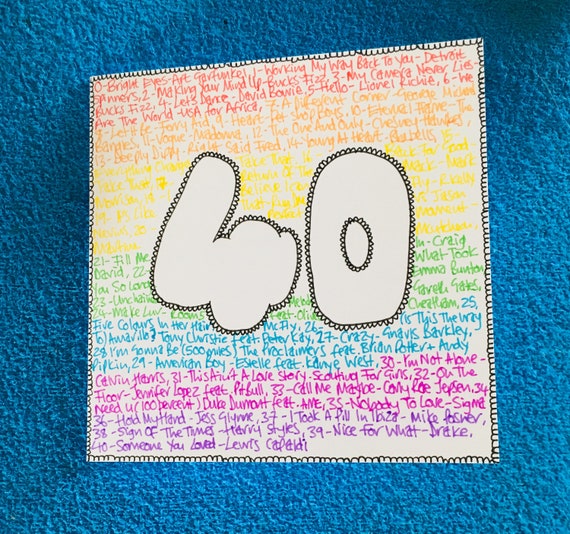 0-Bright Eyes-Art Garfunkel, 1-Working My Way Back To You- Detroit
Spinners, 2- Making Your Mind Up- Bucks Fizz, 3-My Camera Never Lies-
Bucks Fizz, 4-Let's Dance- David Bowie, 5-Hello- Lionel Richie, 6-We
Are The World- USA For Africa, A Different Corner- George Michael
8-Let It Be- Ferry Aid, 9-Heart- Pet Shop Boys, 10-Eternal Flame- The
Bangles, 11-Vogue- Madonna, 12-The One And Only- Chesney Hawkes,
13-Deeply Dippy- Right Said Fred, 14-Young At Heart- Bluebells, 15-
Everything Changes- Take That, 16- Back For Good-
Take That, 17- Return Of The Mack- Mark
Morrison, 18-I Believe I Can Fly- R.Kelly
19- It's Like That- Run DMC Jason
Nevins, 20- Perfect Moment-
Martine McCutcheon,
21- Fill Me In- Craig
David, 22- What Took
You So Long Emma Bunton
23- Unchained Gareth Gates,
24- Make Luv- Room 5 feat. Oliver Cheatham, 25,
Five Colours In Her Hair McFly, 26- (Is This The Way
to) Amarillo? Tony Christie feat. Peter Kay, 27- Crazy- Gnarls Barkley,
28- I'm Gonna Be (500 miles) The Proclaimers feat. Brian Potter + Andy
Pipkin, 29- American Boy- Estelle feat. Kanye West, 30- I'm Not Alone-
Calvin Harris, 31- This Ain't A Love Story- Scouting For Girls, 32- On The
Floor- Jennifer Lopez feat. Pitbull, 33- Call Me Maybe- Carly Rae Jepsen, 34
Need U (100 percent) Duke Dumont feat. AME, 35- Nobody To Love- Sigma
36- Hold My Hand- Jess Glynne, 37- I Took A Pill In Ibiza- Mike Posner,
38- Sign Of The Times- Harry Styles, 39- Nice For What- Drake,
40- Someone You Loved- Lewis Capaldi
40